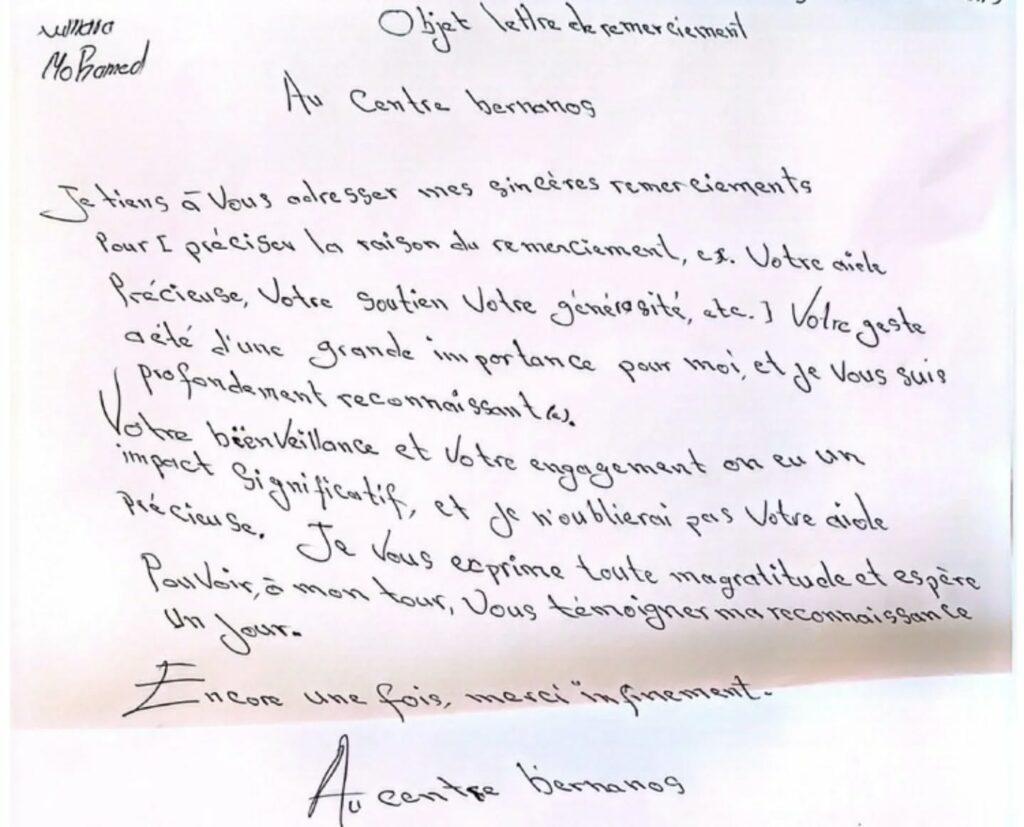 Objet lettre de remerciement
MoHamed
Au Centre bernanos
Je tiens à Vous adresser mes sincères remerciements
Pour [ préciser la raison du remerciement, ex. Votre aide
Précieuse, Votre soutien Votre générosité, etc. ] Votre geste
a été d'une grande importance pour moi, et je Vous suis
profondement reconnaissant(e).
Votre bienVeillance et Votre engagement on eu un
impact Significatif, et je n'oublierai pas Votre aide
Précieuse. Je Vous exprime toute ma gratitude et espère
Pouvoir, à mon tour, Vous témoigner ma reconnaissance
Un Jour.
Encore une fois, merci infinement.
Au centre bernanos